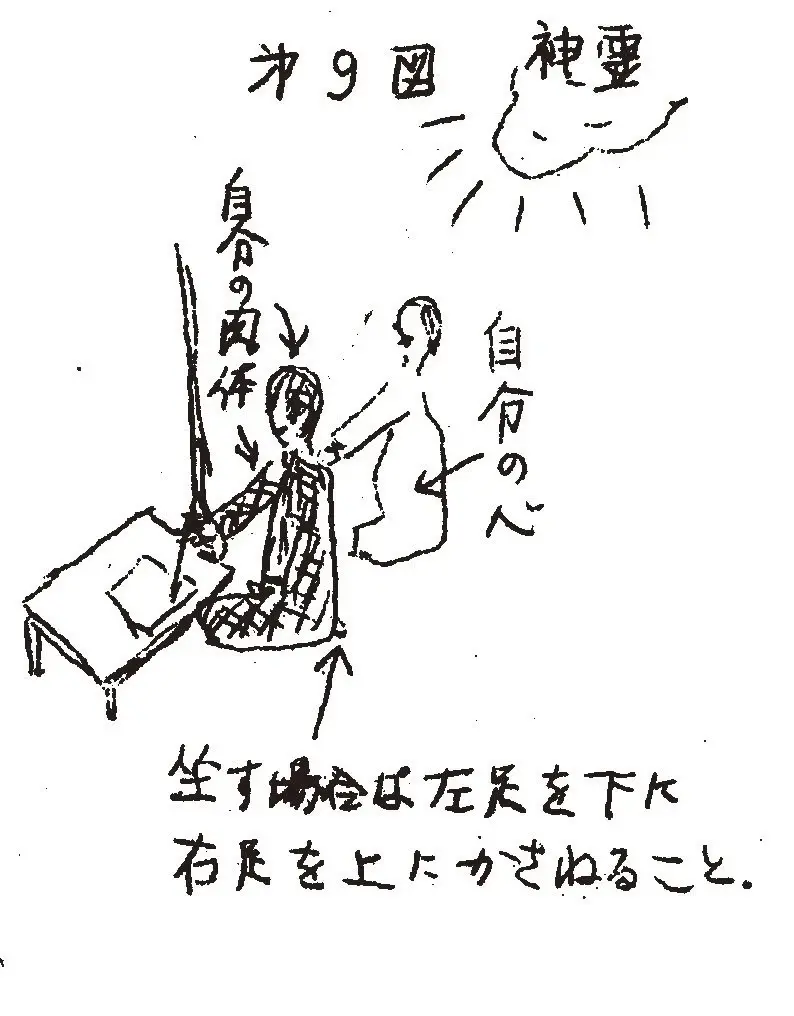 第9図
神霊
自分の肉体
自分の心
坐す場合は左足を下に
右足を上にかさねること.